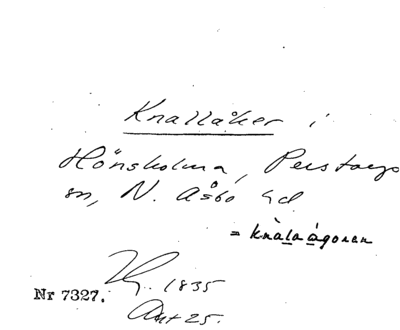 Knallåker i
Hönsholma, Perstorps
sn, N. Åsbo hd
= knàlaágoren
1835
Nr 7327.
Ant 25.